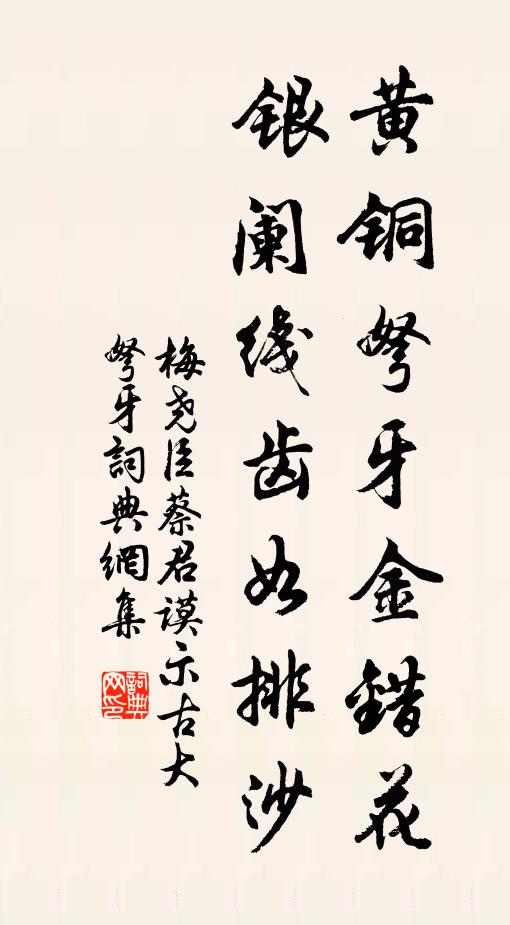 黄铜弩牙金错花
银阑线齿如排沙
梅尧臣蔡君谟示古大
弩牙詞典網集
詞典網印